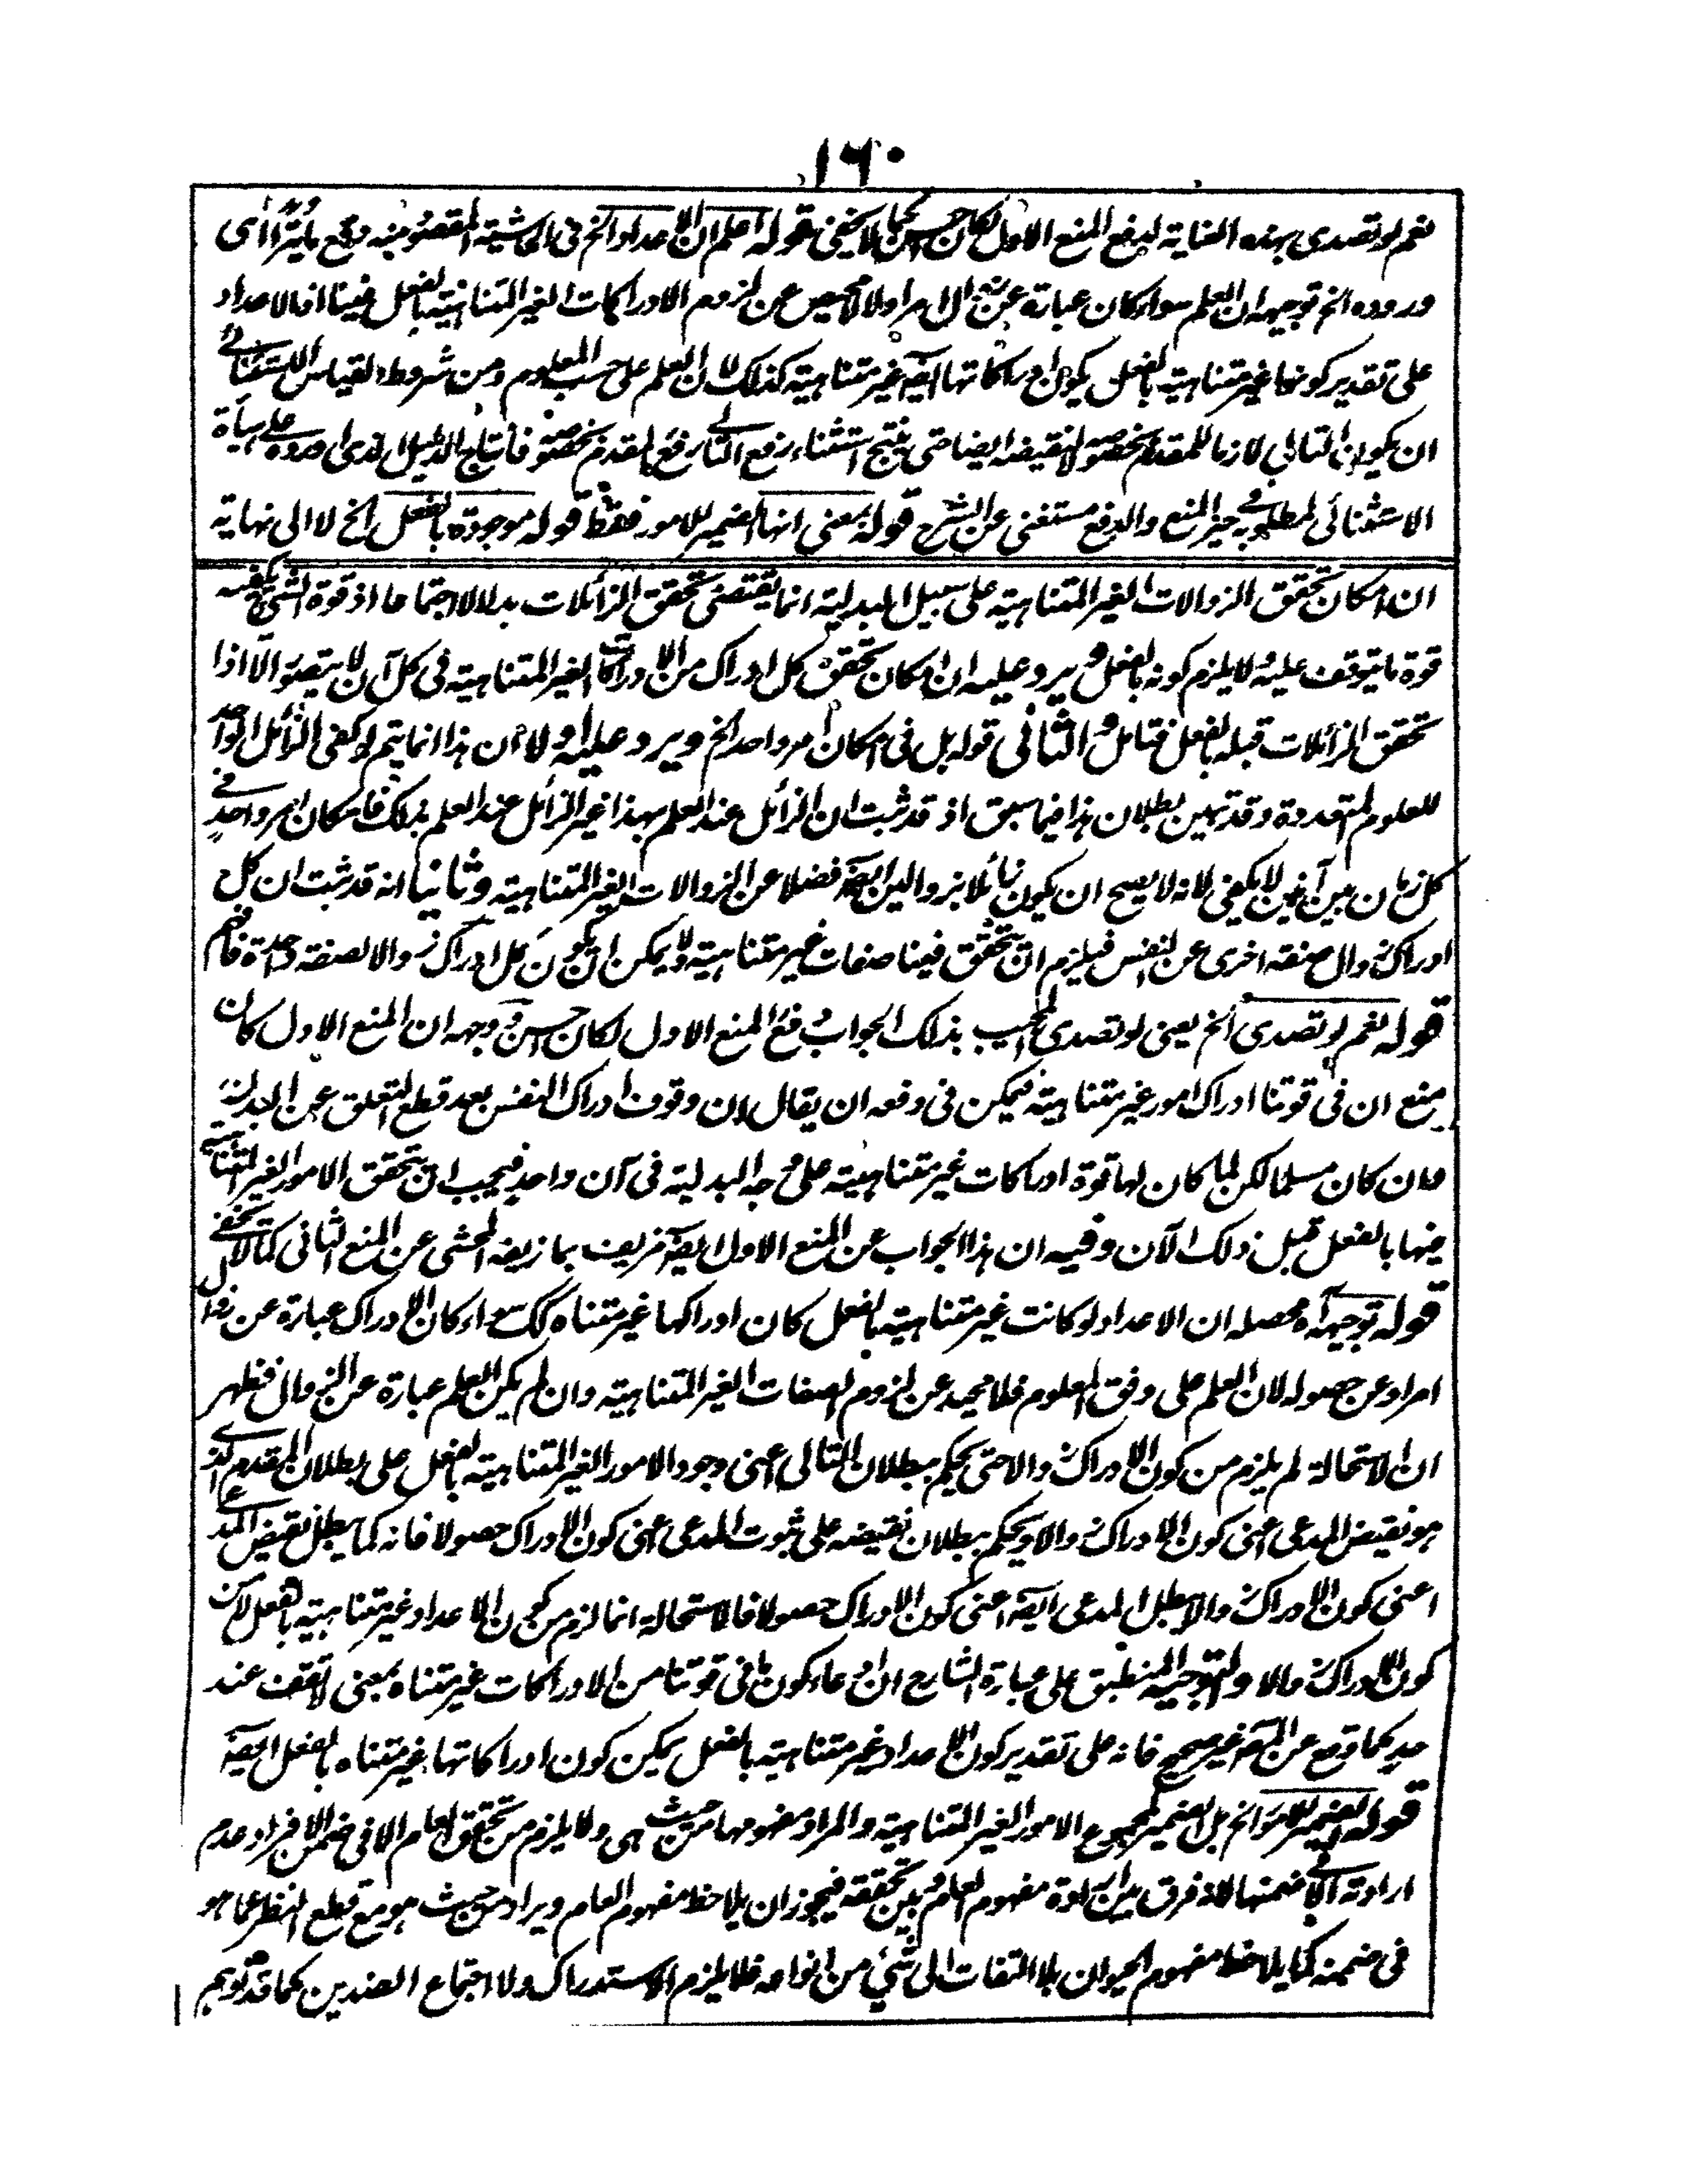 ١٦٠
نعم لو تصدى بهذه العناية لدفع المنع الاول لكان احسن كما لا يخفى قوله اعلم ان الاعداد الخ فى الحاشية المقصود منه دفع ما يتراأى
وروده الخ توجيهه ان العلم سواء كان عبارة عن زوال امر اولا لا محيص عن لزوم الادراكات الغير المتناهية بالفعل فينا اذ الاعداد
على تقدير كونها غير متناهية بالفعل يكون ادراكاتها ايضا غير متناهية كذلك لان العلم على حسب المعلوم ومن شروط القياس الاستثنائى
ان يكون التالى لازما للمقدم بخصوصه لا لنقيضه ايضا حتى ينتج استثناء رفع التالى رفع المقدم بخصوصه فانتاج الدليل الذى اورده على هيأة
الاستثنائى لمطلوبه فى حيز المنع والدفع مستغنى عن الشرح قوله بمعنى انها الضمير للامور فقط قوله موجودة بالفعل الخ لا الى نهاية
ان امكان تحقق الزوالات الغير المتناهية على سبيل البدلية انما يقتضى تحقق الزائلات بدلا لا اجتماعا اذ قوة الشئ يكفيه
قوة ما يتوقف عليه لا يلزم كونه بالفعل ويرد عليه ان امكان تحقق كل ادراك من الادراكات الغير المتناهية فى كل آن لا يتصور الا اذا
تحقق الزائلات قبله بالفعل فتامل والثانى قوله بل فى امكان امر واحد الخ ويرد عليه اولا ان هذا انما يتم لو كفى الزائل الواحد
للعلوم المتعددة وقد تبين بطلان هذا فيما سبق اذ قد ثبت ان الزائل عند العلم بهذا غير الزائل عند العلم بذلك فامكان امر واحد فى
كل زمان بين آنين لا يكفى لانه لا يصح ان يكون زائلا بزوالين ايضا فضلا عن الزوالات الغير المتناهية وثانيا انه قد ثبت ان كل
ادراك زوال صفة اخرى عن النفس فيلزم ان تتحقق فينا صفات غير متناهية ولا يمكن ان يكون كل ادراك زوالا لصفة واحدة فافهم
قوله نعم لو تصدى الخ يعنى لو تصدى المجيب بذلك الجواب دفع المنع الاول لكان احسن وجهه ان المنع الاول كان
منع ان فى قوتنا ادراك امور غير متناهية فيمكن فى دفعه ان يقال ان وقوف ادراك النفس بعد قطع التعلق عن البدن
وان كان مسلما لكن لما كان لها قوة ادراكات غير متناهية على وجه البدلية فى آن واحد فيجب ان تتحقق الامور الغير المتناهية
فيها بالفعل قبل ذلك الآن وفيه ان هذا الجواب عن المنع الاول ايضا مزيف بما زيفه المحشى عن المنع الثانى كما لا يخفى
قوله توجيهه اه محصله ان الاعداد لو كانت غير متناهية بالفعل كان ادراكها غير متناه كك سواء كان الادراك عبارة عن زوال
امر او عن حصوله لان العلم على وفق المعلوم فلا محيد عن لزوم الصفات الغير المتناهية وان لم يكن العلم عبارة عن الزوال فظهر
ان الاستحالة لم يلزم من كون الادراك زوالا حتى يحكم ببطلان التالى اعنى وجود الامور الغير المتناهية بالفعل على بطلان المقدم الذى
هو نقيض المدعى اعنى كون الادراك زوالا ويحكم ببطلان نقيضه على ثبوت المدعى اعنى كون الادراك حصولا فانه كما يبطل نقيض المدعى
اعنى كون الادراك زوالا يبطل المدعى ايضا اعنى كون الادراك حصولا فالاستحالة انما لزم من كون الاعداد غير متناهية بالفعل لا من
كون الادراك زوالا والتوجيه المنطبق على عبارة الشارح ان ادعاء كون ما فى قوتنا من الادراكات غير متناه بمعنى لا تقف عند
حد كما وقع عن المص غير صحيح فانه على تقدير كون الاعداد غير متناهية بالفعل يمكن كون ادراكاتها غير متناه بالفعل ايضا
قوله الضمير للامور الخ بل الضمير لمجموع الامور الغير المتناهية والمراد مفهومها من حيث هى ولا يلزم من تحقق العام الا فى ضمن الافراد عدم
ارادته الا فى ضمنها لانه فرق بين ارادة مفهوم العام وبين تحققه فيجوز ان يلاحظ مفهوم العام ويراد من حيث هو مع قطع النظر عما هو
فى ضمنه كما يلاحظ مفهوم الحيوان بلا التفات الى شئ من انواعه فلا يلزم الاستدراك ولا اجتماع الضدين كما قد توهم